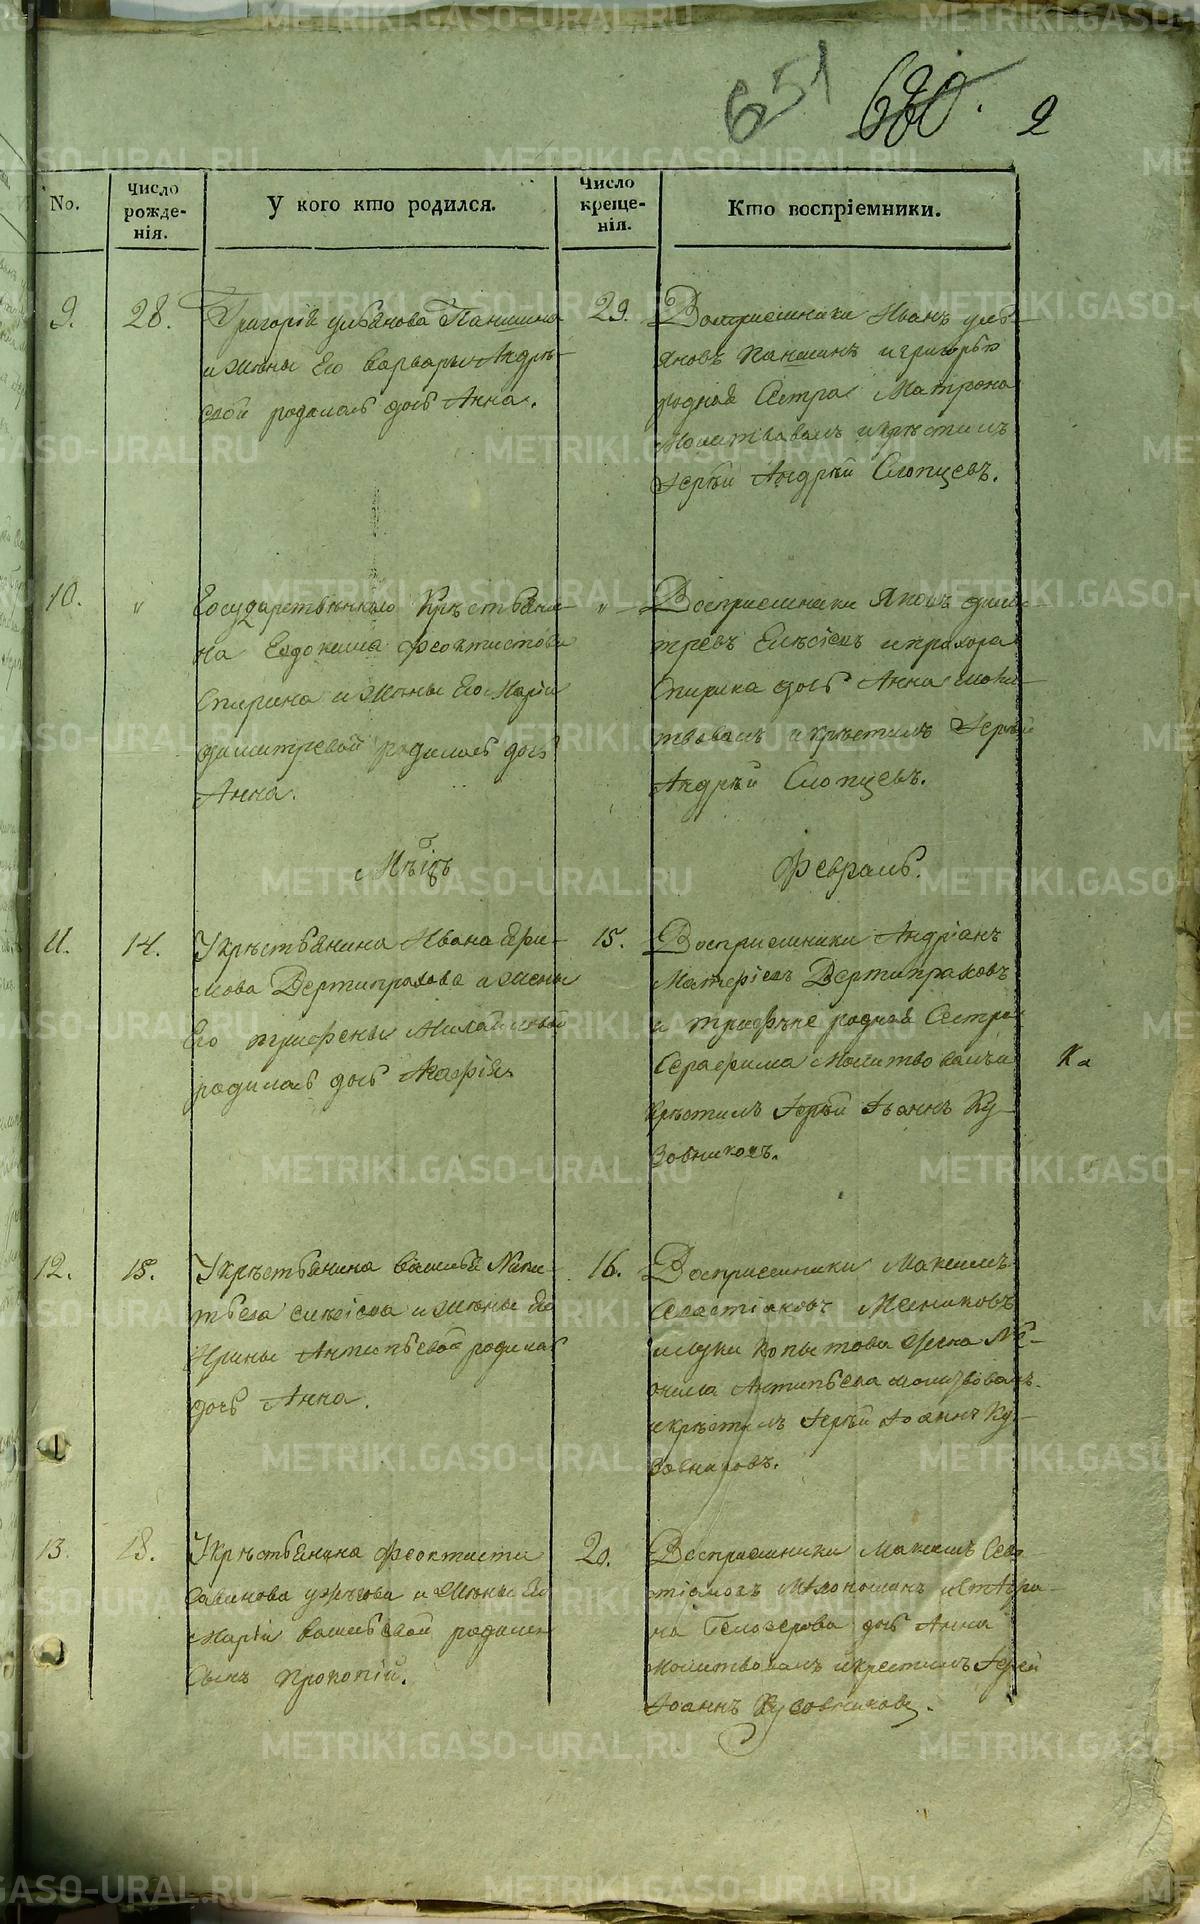 651 680. 2
No.
Число рожде-нія.
У кого кто родился.
Число креще-нія.
Кто воспріемники.
9.
28.
Григорія ульянова Паншина
и жены Его варвары Андрѣ-
евой родилась дочь Анна.
29.
Воспріемники Иванъ уль-
яновъ Паншинъ и григорья
родная Сестра Матрона
Молитвовалъ и крѣстилъ
Іерѣй Андрѣй Слопцевъ.
10.
"
Государственнаго Крѣстьяни-
на Евдокима Феоктистова
Спирина и жены Его Маріи
димитревой родилась дочь
Анна.
"
Воспріемники Яковъ дими-
тревъ и прохора
Спирина дочь Анна моли-
твовалъ и крѣстилъ Іерѣй
Андрѣй Слопцевъ.
Мѣсяцъ
Февраль.
11.
14.
У крѣстьянина Ивана Ефи-
мова Вертипрахова и жены
Его трифены
родилась дочь Агафія
15.
Воспріемники Андріанъ
Вертипраховъ
и родная Сестра
Серафима Молитвовалъ и
крѣстилъ Іерѣй Іоаннъ Ку-
зовниковъ.
Ка
12.
15.
У крѣстьянина василья
и жены Его
Ирины Антипьевой родилась
дочь Анна.
16.
Воспріемники Максимъ
Севастіановъ
и луки Копытова жена
Антипьева молитвовалъ
и крѣстилъ Іерѣй Іоаннъ Ку-
зовниковъ.
13.
18.
У крѣстьянина Феоктиста
Савинова и жены Его
Маріи васильевой родился
Сынъ Прокопій.
20.
Воспріемники Максимъ Сева-
стіановъ
Белозерова дочь Анна
Молитвовалъ и крестилъ Іерей
Іоаннъ Кузовниковъ.
METRIKI.GASO-URAL.RU